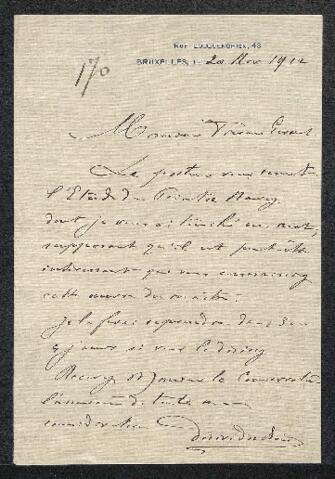 Rue Locquenghien, 43
170
BRUXELLES, le 20 Nov 1912
Monsieur
Le porteur vous remet
l'Etude du Peintre
dont je vous ai touché un mot,
supposant qu'il est peut-être
intéressant que vous connaissiez
cette œuvre du maître.
Je la ferai reprendre dans
jours si vous le désirez
Monsieur le Conservateur
l'assurance de toute ma
considération